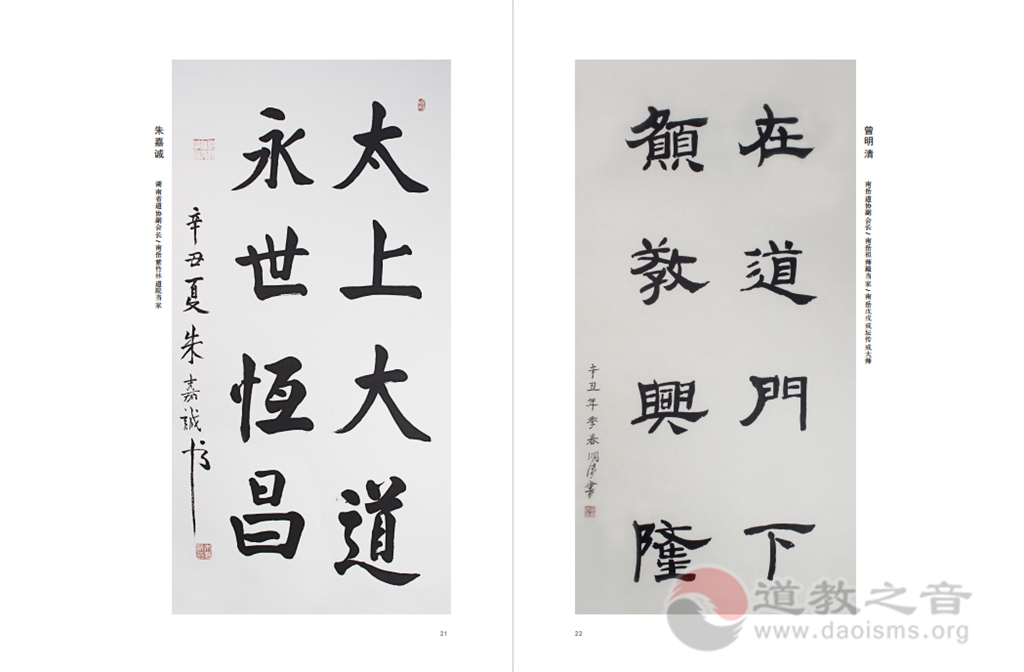 朱嘉诚
湖南省道协副会长/南岳紫竹林道院当家
太上大道
永世恆昌
辛丑夏朱嘉誠书
21
曾明清
南岳道协副会长/南岳祖师殿当家/南岳戊戌戒坛传戒大师
在道門下
願教興隆
辛丑年季春明清書
22
道教之音
www.daoisms.org